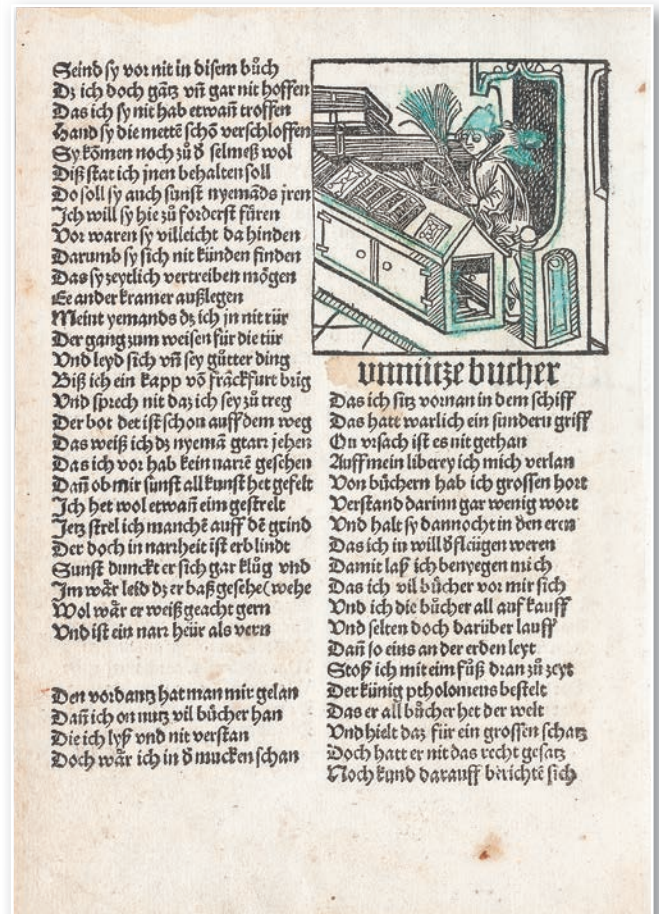 Seind sy vor nit in disem bůch
Dz ich doch gãtz vñ gar nit hoffen
Das ich sy nit hab etwañ troffen
Hand sy die mettẽ schõ verschloffen
Sy kõmen noch zů d̕ selmeß wol
Diß stat ich jnen behalten soll
Do soll sy auch sunst nyemãds jren
Ich will sy hie zů forderst füren
Vor waren sy villeicht da hinden
Darumb sy sich nit künden finden
Das sy zeytlich vertreiben mögen
Ee ander kramer außlegen
Meint yemands dz ich jn nit rür
Der gang zum weisen für die tür
Vnd leyd sich vñ sey gůtter ding
Biß ich ein kapp võ frãckfurt brig
Vnd sprech nit daz ich sey zů treg
Der bot det ist schon auff dem weg
Das weiß ich dz nyemã gtarr jehen
Das ich vor hab kein narrẽ gesehen
Dañ ob mir sunst all kunst het gefelt
Ich het wol etwañ eim gestrelt
Jetz strel ich manchẽ auff dẽ grind
Der doch in narrheit ist erblindt
Sunst dunckt er sich gar klůg vnd
Im wår leid dz er baß gesehe (wehe
Wol wår er weiß geacht gern
Vnd ist ein narr heür als vern
Den vordantz hat man mir gelan
Dañ ich on nutz vil bůcher han
Die ich lyß vnd nit verstan
Doch wår ich in d̕ mucken schan
vnnütze bucher
Das ich sitz vornan in dem schiff
Das hatt warlich ein sundern griff
On vrsach ist es nit gethan
Auff mein liberey ich mich verlan
Von bůchern hab ich grossen hort
Verstand darinn gar wenig wort
Vnd halt sy dannocht in den eren
Das ich in will d̕ fleügen weren
Damit laß ich benyegen mich
Das ich vil bůcher vor mir sich
Vnd ich die bůcher all auf kauff
Vnd selten doch darüber lauff
Dañ so eins an der erden leyt
Stoß ich mit eim fůß dran zů zeyt
Der künig ptholomeus bestelt
Das er all bůcher het der welt
Vnd hielt daz für ein grossen schatz
Doch hatt er nit das recht gesatz
Noch kund darauff berichtẽ sich